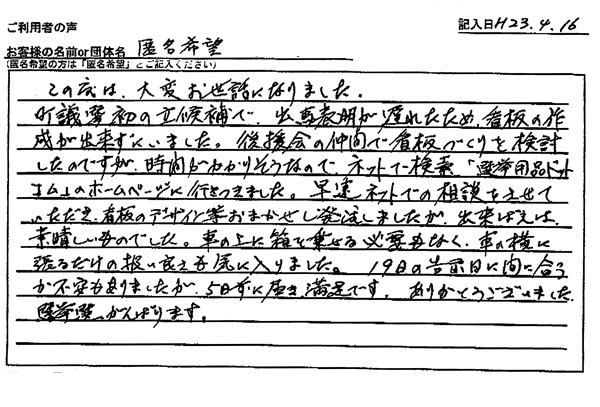 ご利用者の声
記入日H23.4.16
お客様の名前or団体名 匿名希望
(匿名希望の方は「匿名希望」とご記入ください)
この度は、大変お世話になりました。
町議選初の立候補で、出馬表明が遅れたため、看板の作
成が出来ずにいました。後援会の仲間で看板づくりを検討
したのですが、時間がかかりそうなので、ネットで検索「選挙用品ドット
コム」のホームページに行きつきました。早速ネットでの相談をさせて
いただき、看板のデザイン等おまかせし発注しましたが、出来ばえは、
素晴しいものでした。車の上に箱を乗せる必要もなく、車の横に
張るだけの扱い良さも気に入りました。19日の告示日に間に合う
か不安もありましたが、5日ずに届き満足です。ありがとうございました。
選挙戦、がんばります。